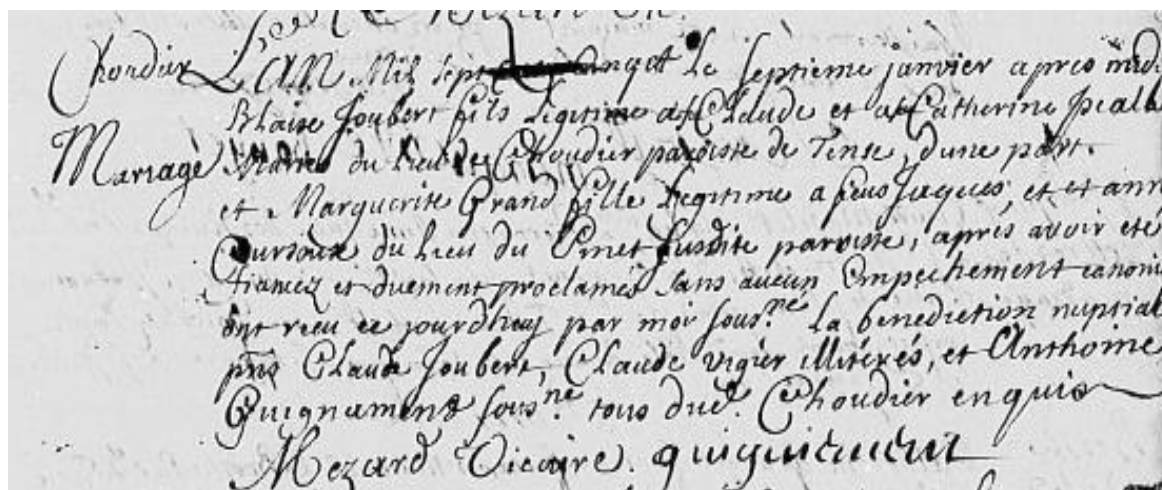 Choudier L'AN Mil sept vingt le septieme janvier apres midi
Blaise Joubert fils legitime a Claude et a Catherine
Mariage du lieu de Choudier paroisse de Tense, dune part.
et Marguerite Grand fille legitime a feus Jaques, et et ann
du lieu du Pinet susdite paroisse, aprés avoir eté
fiancez et duement proclamés sans aucun Empechement canoni
ont reçu ce jourdhuy par moi sous.né la benediction nuptial
pns Claude Joubert, Claude vigier illiterés, et Anthoine
Guignament sous.né tous dud. Choudier enquis
Mezard Vicaire. guignement